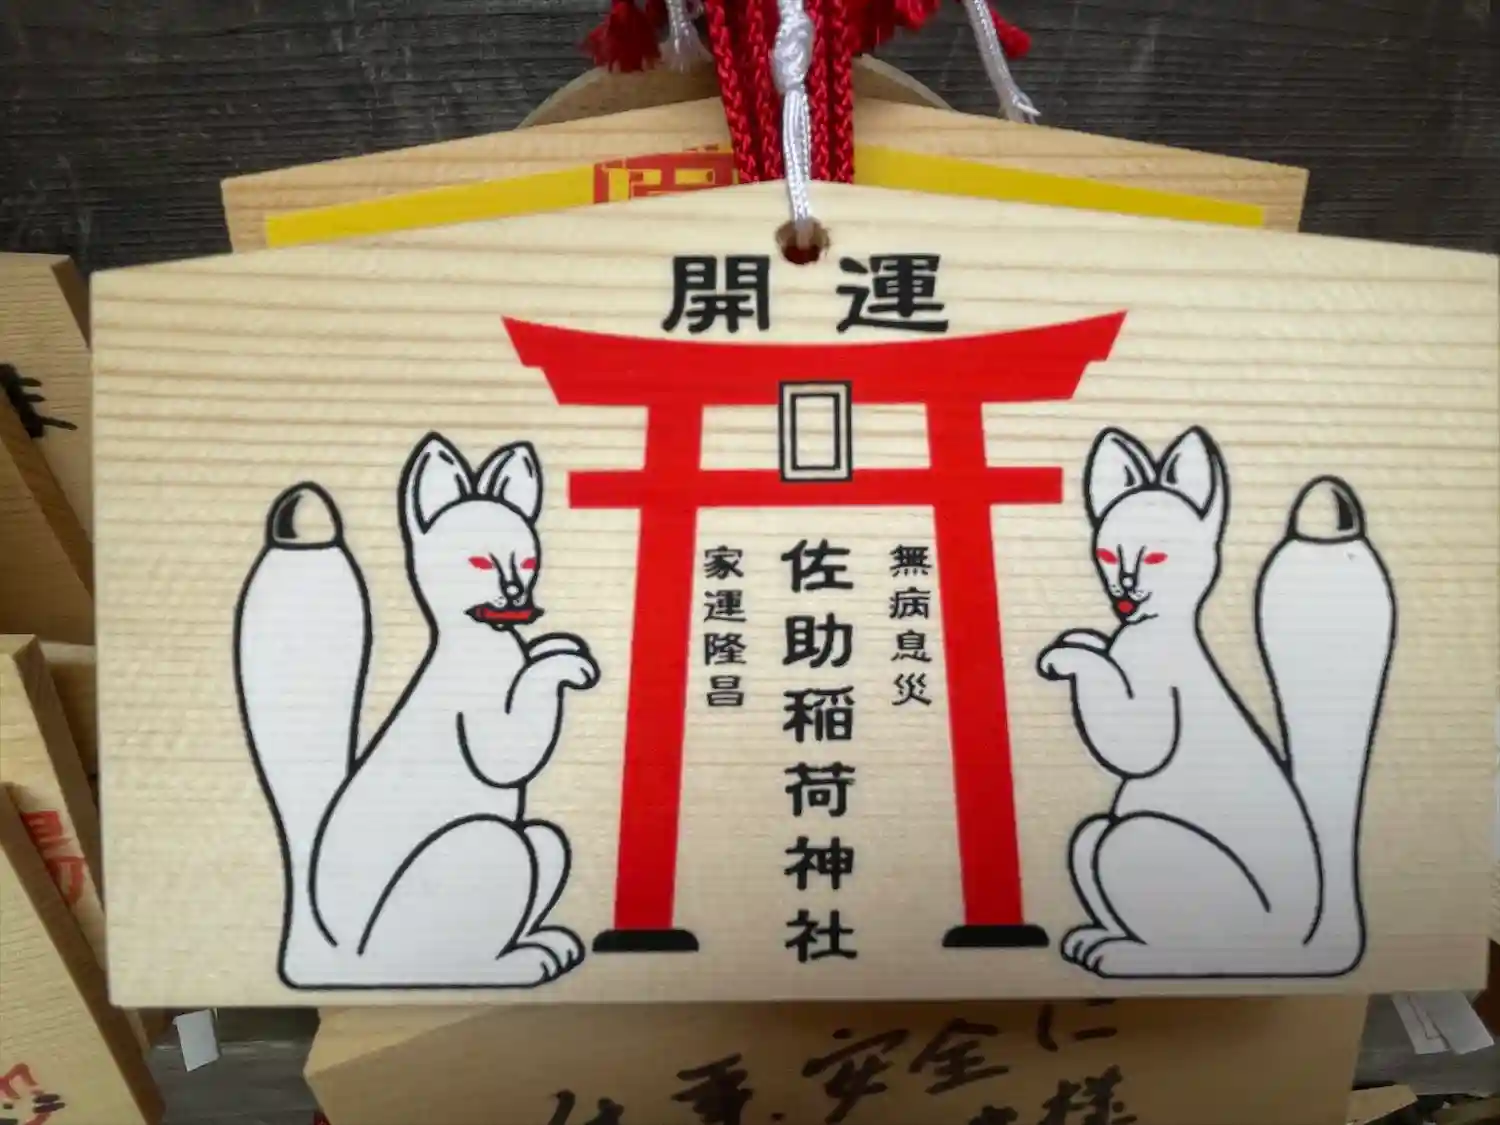 開運
無病息災
佐助稲荷神社
家運隆昌
安全に
様